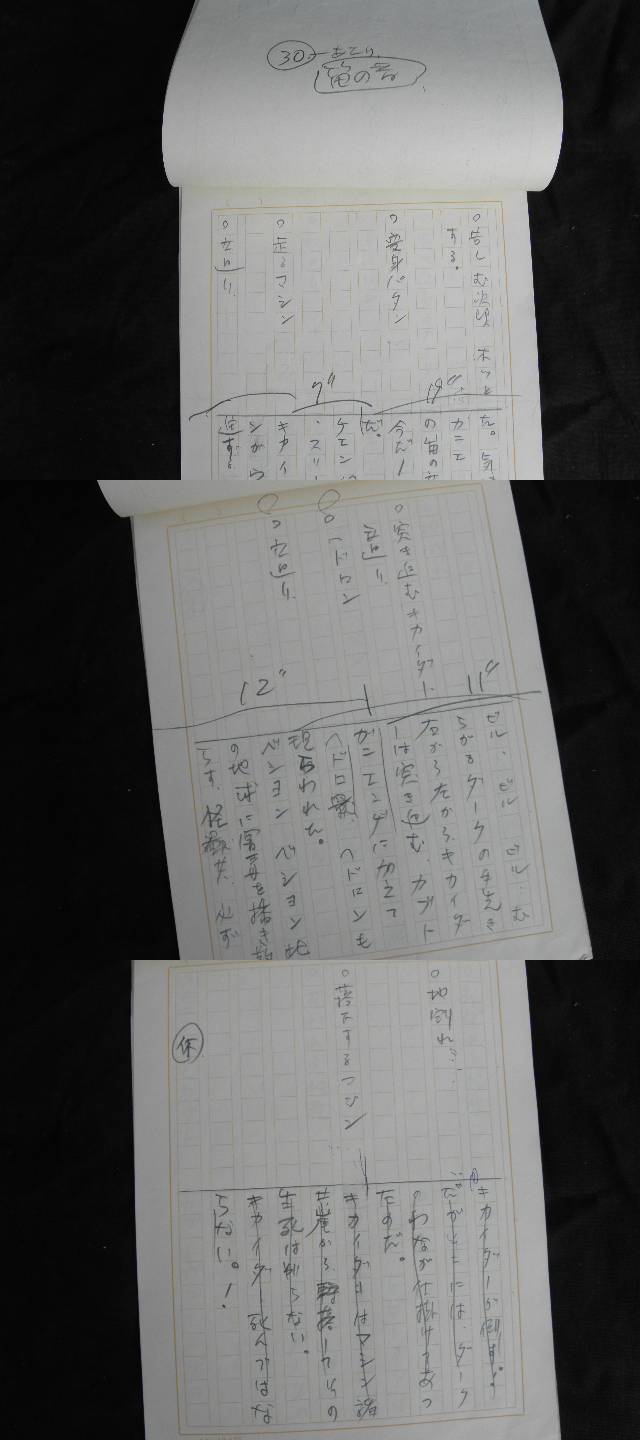 30
笛の音
○苦しむ次郎 ホッと
する。
○変身バタン
○走るマシン
○立回り
19"
7"
た。気
カニエ
の笛の音
今だ!
だ。
チエン
・スリー
キカイ
ンから
迫ず。
○突き進むキカイダー
立回り
○ヘドロン
○立回り
11"
12"
ビル、ビル、ビル、む
らがるダークの手先を
右から左からキカイダ
ーは突き進む、カブト
ガニエンヂに加えて
ヘドロ ヘドロンも
現われた。
ベンヨン ベンヨン地
の地球に害毒を撒き
らす、怪獣共、必ず
○地割れ…
○落下するマシン
休
キカイダー
だがそこには、ダーク
のわなが仕掛けてあっ
たのだ。
キカイダーはマシン諸
共崖から 落してその
生死は判らない。
キカイダー死んではな
らない。!